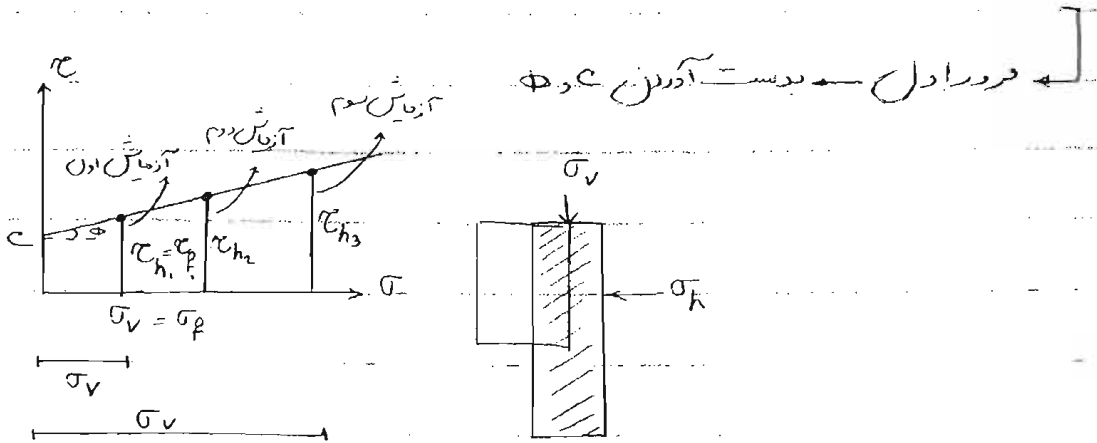 مرور اول ← بدست آوردن c و Φ
τ
آزمایش اول
آزمایش دوم
آزمایش سوم
c
Φ
τh₁ = τf
τh₂
τh₃
σ
σv = σf
σv
σv
σv
σh